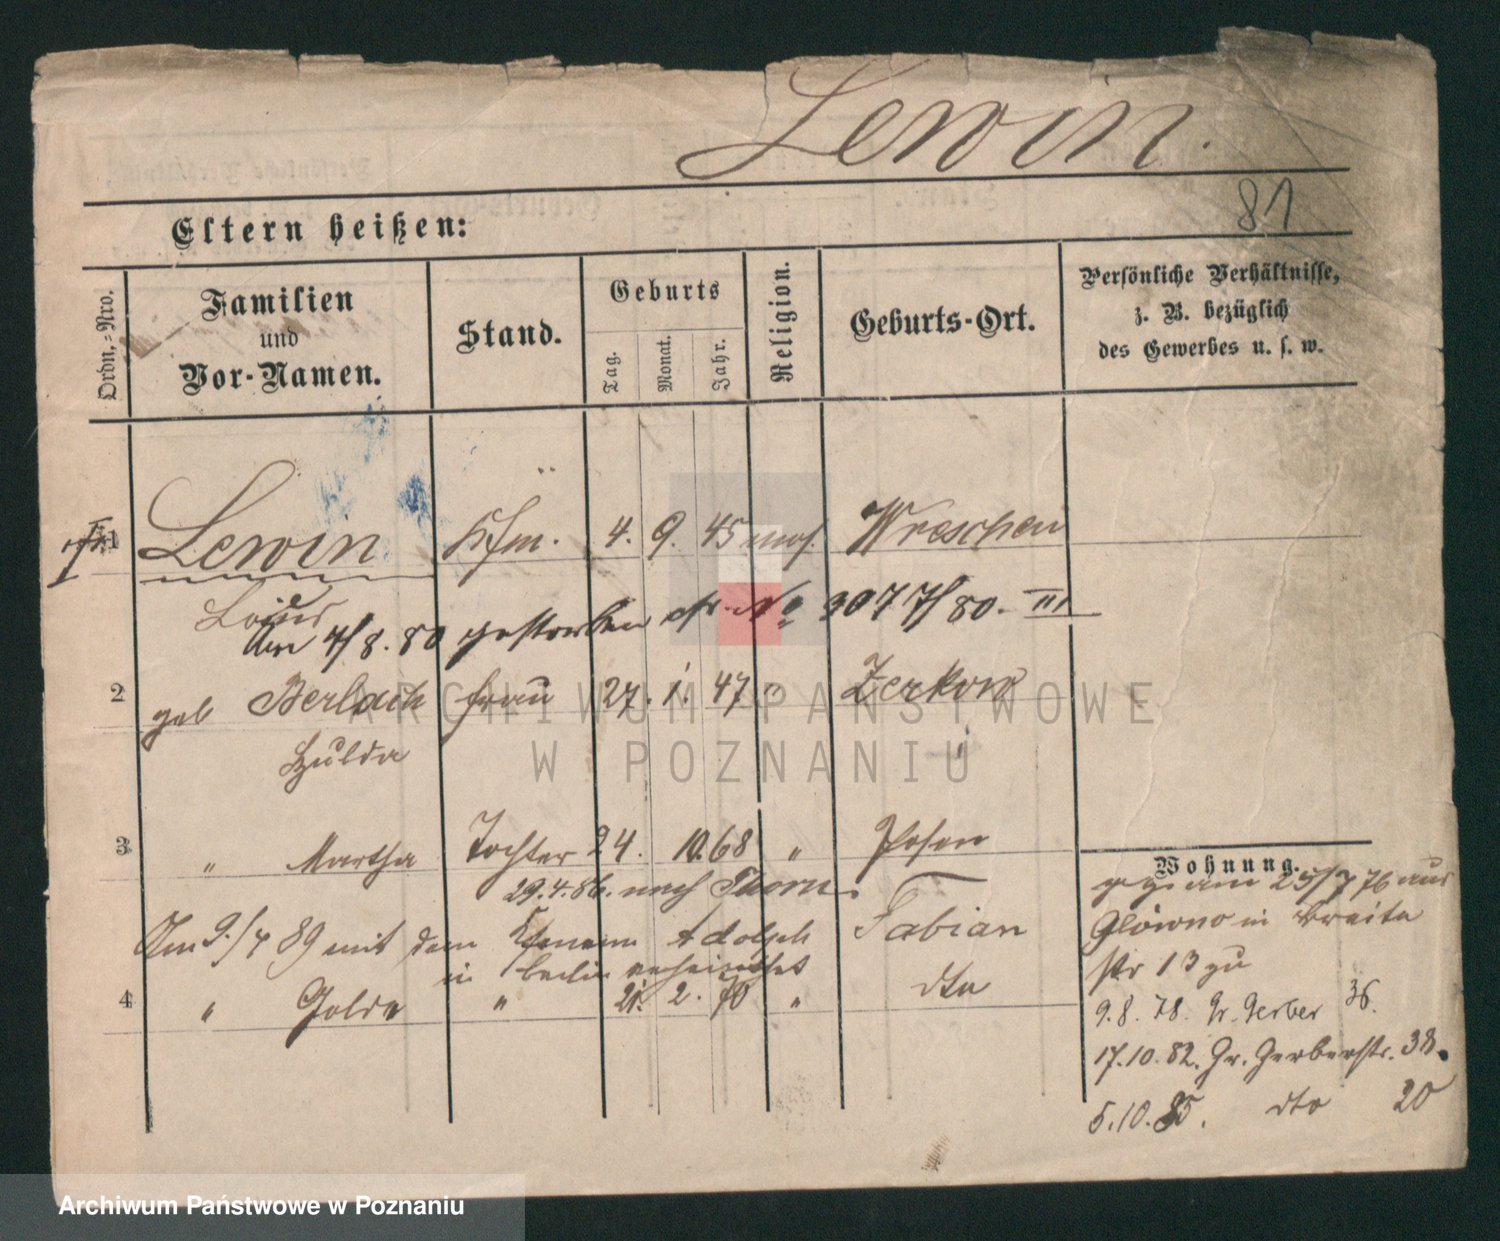 Lewin.
81
Eltern heißen:
Ordn.-Nro.
Familien
und
Vor-Namen.
Stand.
Geburts
Tag.
Monat.
Jahr.
Religion.
Geburts-Ort.
Persönliche Verhältnisse,
z. B. bezüglich
des Gewerbes u. s. w.
1 Lewin Kfm. 4. 9. 45 mos. Wreschen
Louis
Am 4/8. 80 gestorben cfr. No 3077/80. III
2 geb Berlach Frau 27. 1. 47 " Zerkow
Hulda
3 " Martha Tochter 24. 10. 68 " Posen
29.4.86. nach Thorn.
Am 9./4 89 mit dem Kfmann Adolph Fabian
in Berlin verheirathet
4 " Golde " 21. 2. 70 " dto
Wohnung.
am 25/7 76 aus
Glowno in Breite
str 13 zu
9.8.78. Gr. Gerber 36.
17.10.82. Gr. Gerberstr. 38.
5.10.85. dto 20
ARCHIWUM PAŃSTWOWE
W POZNANIU
Archiwum Państwowe w Poznaniu